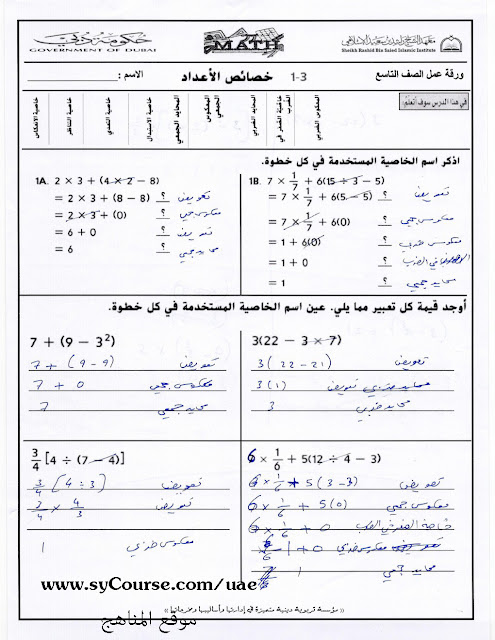 حكومة دبي
GOVERNMENT OF DUBAI
MATH
معهد الشيخ راشد بن سعيد الإسلامي
Sheikh Rashid Bin Saied Islamic Institute
ورقة عمل الصف التاسع
1-3 خصائص الأعداد
الاسم :
في هذا الدرس سوف أتعلم:
المعكوس الضربي
خاصية الضرب في الصفر
المحايد الضربي
المعكوس الجمعي
المحايد الجمعي
خاصية الاستبدال
خاصية التعدي
خاصية التناظر
خاصية الانعكاس
اذكر اسم الخاصية المستخدمة في كل خطوة.
1A. 2 × 3 + (4 × 2 − 8)
= 2 × 3 + (8 − 8) ؟ تعويض
= 2 × 3 + (0) ؟ معكوس جمعي
= 6 + 0 ؟ تعويض
= 6 ؟ محايد جمعي
1B. 7 × 1/7 + 6(15 ÷ 3 − 5)
= 7 × 1/7 + 6(5 − 5) ؟ تعويض
= 7 × 1/7 + 6(0) ؟ معكوس جمعي
= 1 + 6(0) ؟ معكوس ضربي
= 1 + 0 ؟ في الضرب
= 1 ؟ محايد جمعي
أوجد قيمة كل تعبير مما يلي. عين اسم الخاصية المستخدمة في كل خطوة.
7 + (9 − 3²)
7 + (9 − 9) تعويض
7 + 0 معكوس جمعي
7 محايد جمعي
3(22 − 3 × 7)
3(22 − 21) تعويض
3(1) محايد ضربي تعويض
3 محايد ضربي
3/4 [4 ÷ (7 − 4)]
3/4 [4 ÷ 3] تعويض
3/4 × 4/3 تعويض
1 معكوس ضربي
6 × 1/6 + 5(12 ÷ 4 − 3)
6 × 1/6 + 5(3 − 3) تعويض
6 × 1/6 + 5(0) معكوس جمعي
6 × 1/6 + 0
1 + 0 معكوس ضربي
1 محايد جمعي
www.syCourse.com/uae
(( مؤسسة تربوية دينية متميزة في إدارتها وأساليبها ومخرجاتها ))
موقع المناهج